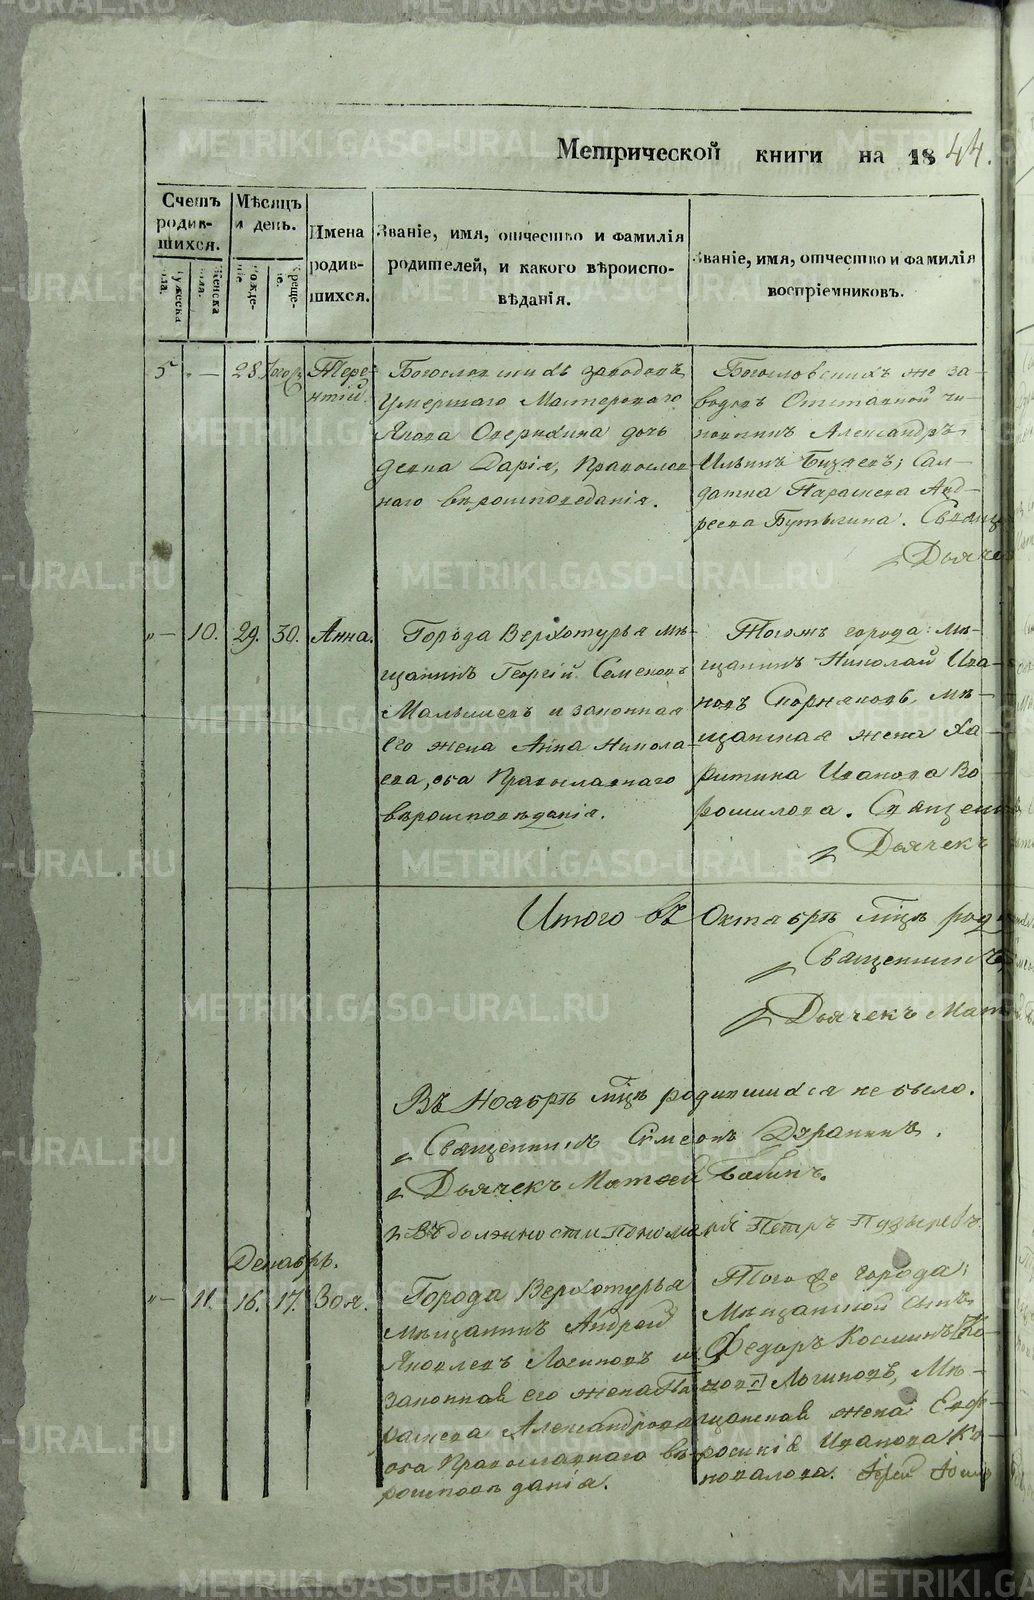 METRIKI.GASO-URAL.RU
Метрической книги на 1844.
Счетъ родившихся.
Мѣсяцъ и день.
Имена родившихся.
Званіе, имя, отчество и фамилія родителей, и какого вѣроисповѣданія.
Званіе, имя, отчество и фамилія воспріемниковъ.
Мужеска пола.
Женска пола.
Рожденіе.
Крещеніе.
5 — 28.
Тере-
нтій.
Богословскихъ заводовъ
Умершаго Мастероваго
Якова
дочь
девка Дарія, Православ-
наго вѣроисповеданія.
Богословскихъ же за-
водовъ Отставной чи-
новникъ Александръ
Ильинъ
Сал-
датка Параскева Анд-
реева Бутыгина.
Дьяче
"— 10. 29. 30. Анна.
Города Верхотурья мѣ-
щанинъ Георгій Семеновъ
Малышевъ и законная
его жена Анна Никола-
ева, оба Православнаго
вѣроисповѣданія.
Тогожъ города мѣ-
щанинъ Николай Ива-
новъ
мѣ-
щанская жена Ха-
ритина Иванова Во-
рошилова. Священ
Дьячекъ
Итого въ Октябрѣ мцѣ род
Священникъ
Дьячекъ Мат
Въ Ноябрѣ мцѣ родившихся не было.
Священникъ Сѵмеонъ
Дьячекъ Матѳей Бабинъ.
Въ должности пономаря Петръ Пузыревъ
Декабрь.
"— 11. 16. 17. Зоя.
Города Верхотурья
Мѣщанинъ Андрей
Яковлевъ Логиновъ и
законная его жена Па-
раскева Александрова
оба Православнаго вѣ-
роисповѣданія.
Того же города
Мѣщанской сынъ
Федоръ Косминъ
Логиновъ, Мѣ-
щанская жена Евф-
росинія Иванова Ко-
новалова. Іерей